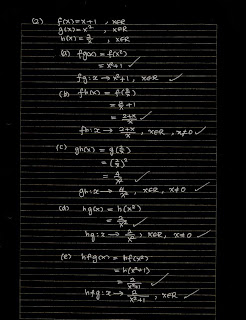 (2) f(x)=x+1 , x∈R
g(x)=x² , x∈R
h(x)=2/x , x∈R
(a) fg(x) = f(x²)
= x²+1 ✓
fg:x → x²+1, x∈R ✓
(b) fh(x) = f(2/x)
= 2/x + 1
= (2+x)/x ✓
fh:x → (2+x)/x, x∈R, x≠0 ✓
(c) gh(x) = g(2/x)
= (2/x)²
= 4/x² ✓
gh:x → 4/x², x∈R, x≠0 ✓
(d) hg(x) = h(x²)
= 2/x² ✓
hg:x → 2/x², x∈R, x≠0 ✓
(e) hfg(x) = hf(x²)
= h(x²+1)
= 2/(x²+1) ✓
hfg:x → 2/(x²+1), x∈R ✓